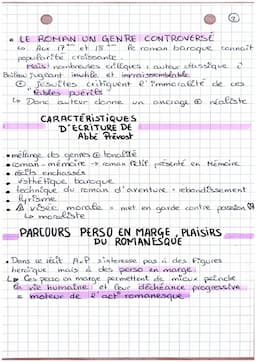 ②
• LE ROMAN UN GENRE CONTROVERSÉ
↳ Aux 17 et 18 le roman baroque connait
popularité croissante.
Mais! nombreuses critiques : auteur classique
Boileau jugeant inutile et invraisemblable
Jésuites critiquent l'immoralité de ces
"fables puérils"
↳ Donc auteur donne un ancrage ⊕ réaliste
CARACTÉRISTIQUES
D'ÉCRITURE DE
Abbé Prévost
• mélange des genres ⊕ tonalité
• roman-mémoire → roman fictif présenté en Mémoire
• récits enchassés
• esthétique baroque
• technique du roman d'aventure = rebondissement
• lyrisme
• À visée morale = met en garde contre passion
↳ moraliste
PARCOURS PERSO EN MARGE, PLAISIRS
DU ROMANESQUE
• Dans ce récit A.P s'interesse pas à des figures
heroïque mais à des perso en marge.
↳ Ces perso en marge permettent de mieux peindre
la vie humaine et leur déchéance progressive
= moteur de l'act° romanesque